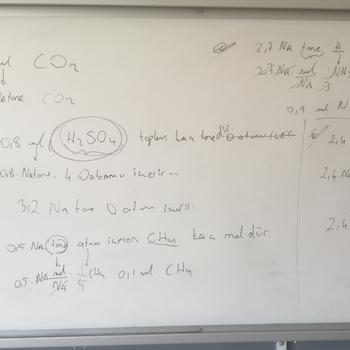 mol CO2
NA tane CO2
0,8 mol H2SO4 toplam kaç tanedir O atomu
0,8.NA tane. 4 O atomu içerir
3,2 NA tane O atomu içerir.
0,5 NA tane atom içeren CH4 kaç moldür.
0,5. NA mol/NA . 1/5 CH4 0,1 mol CH4
2,7 NA tane
2,7 NA. mol/NA 1/3 NH
0,9 mol N
2,4
2,4.NA
2,4